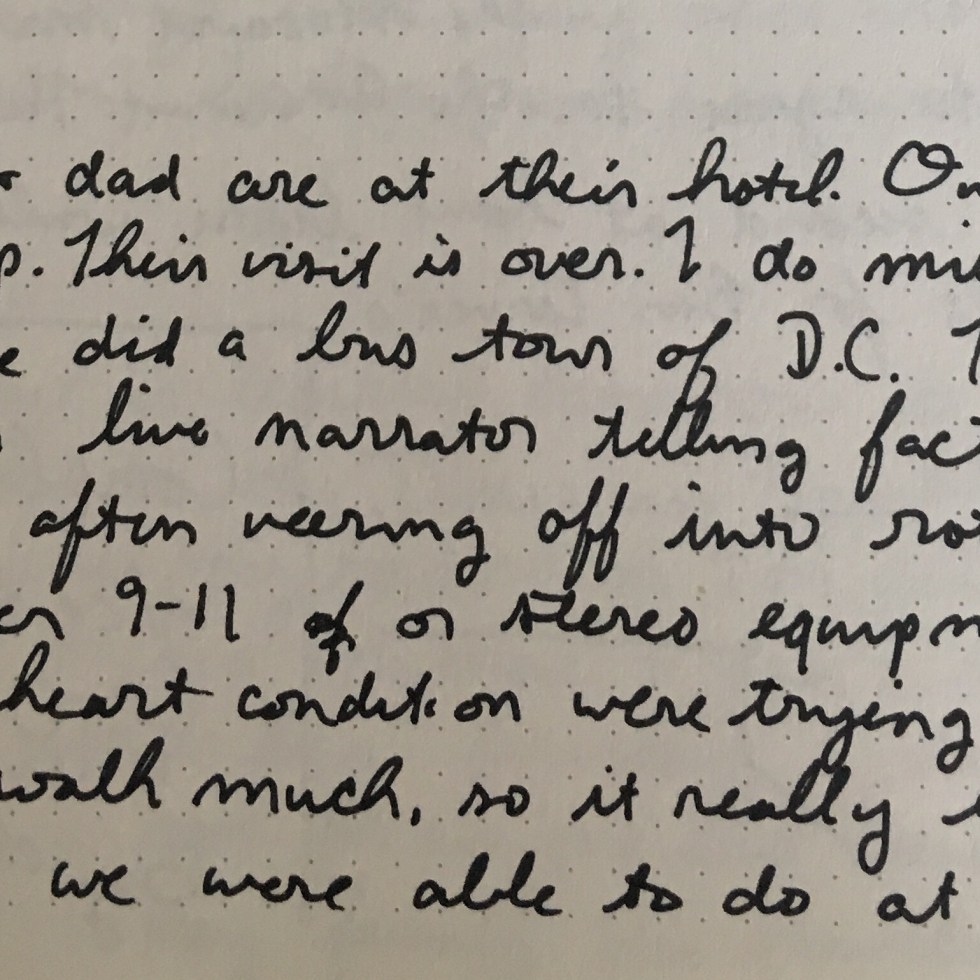 dad are at their hotel. Ou
p. Their visit is over. I do mi
e did a bus tour of D.C.
live narrator telling fac
after veering off into ro
er 9-11 of or stereo equipm
heart condition were trying
walk much, so it really
we were able to do at